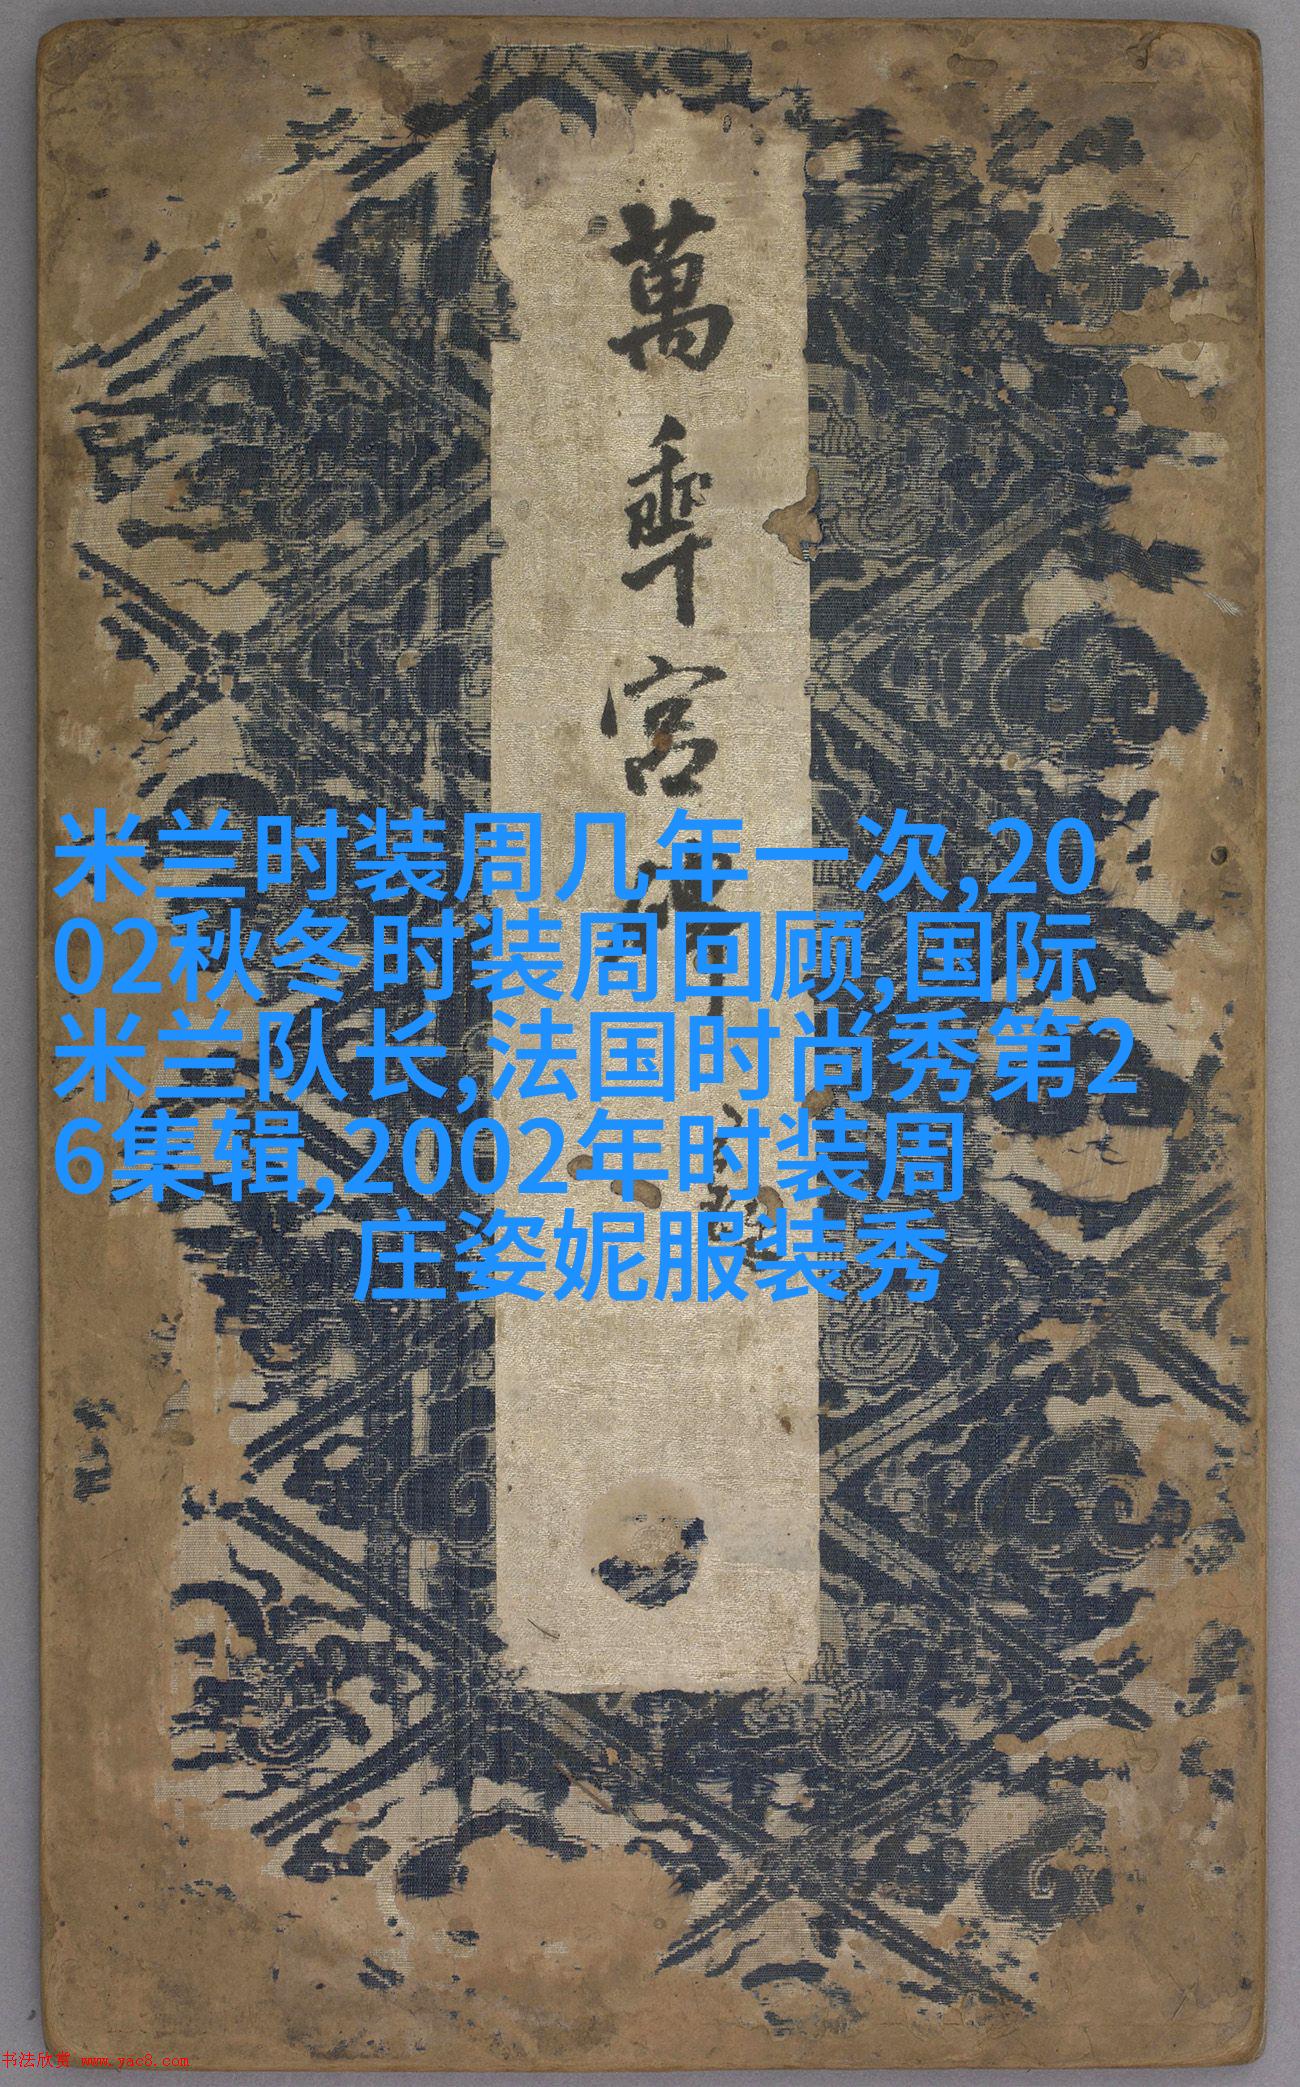 萬年宮
米兰时装周几年一次,20
02秋冬时装周回顾,国际
米兰队长,法国时尚秀第2
6集辑,2002年时装周
庄姿妮服装秀
书法欣赏 www.yac8.com